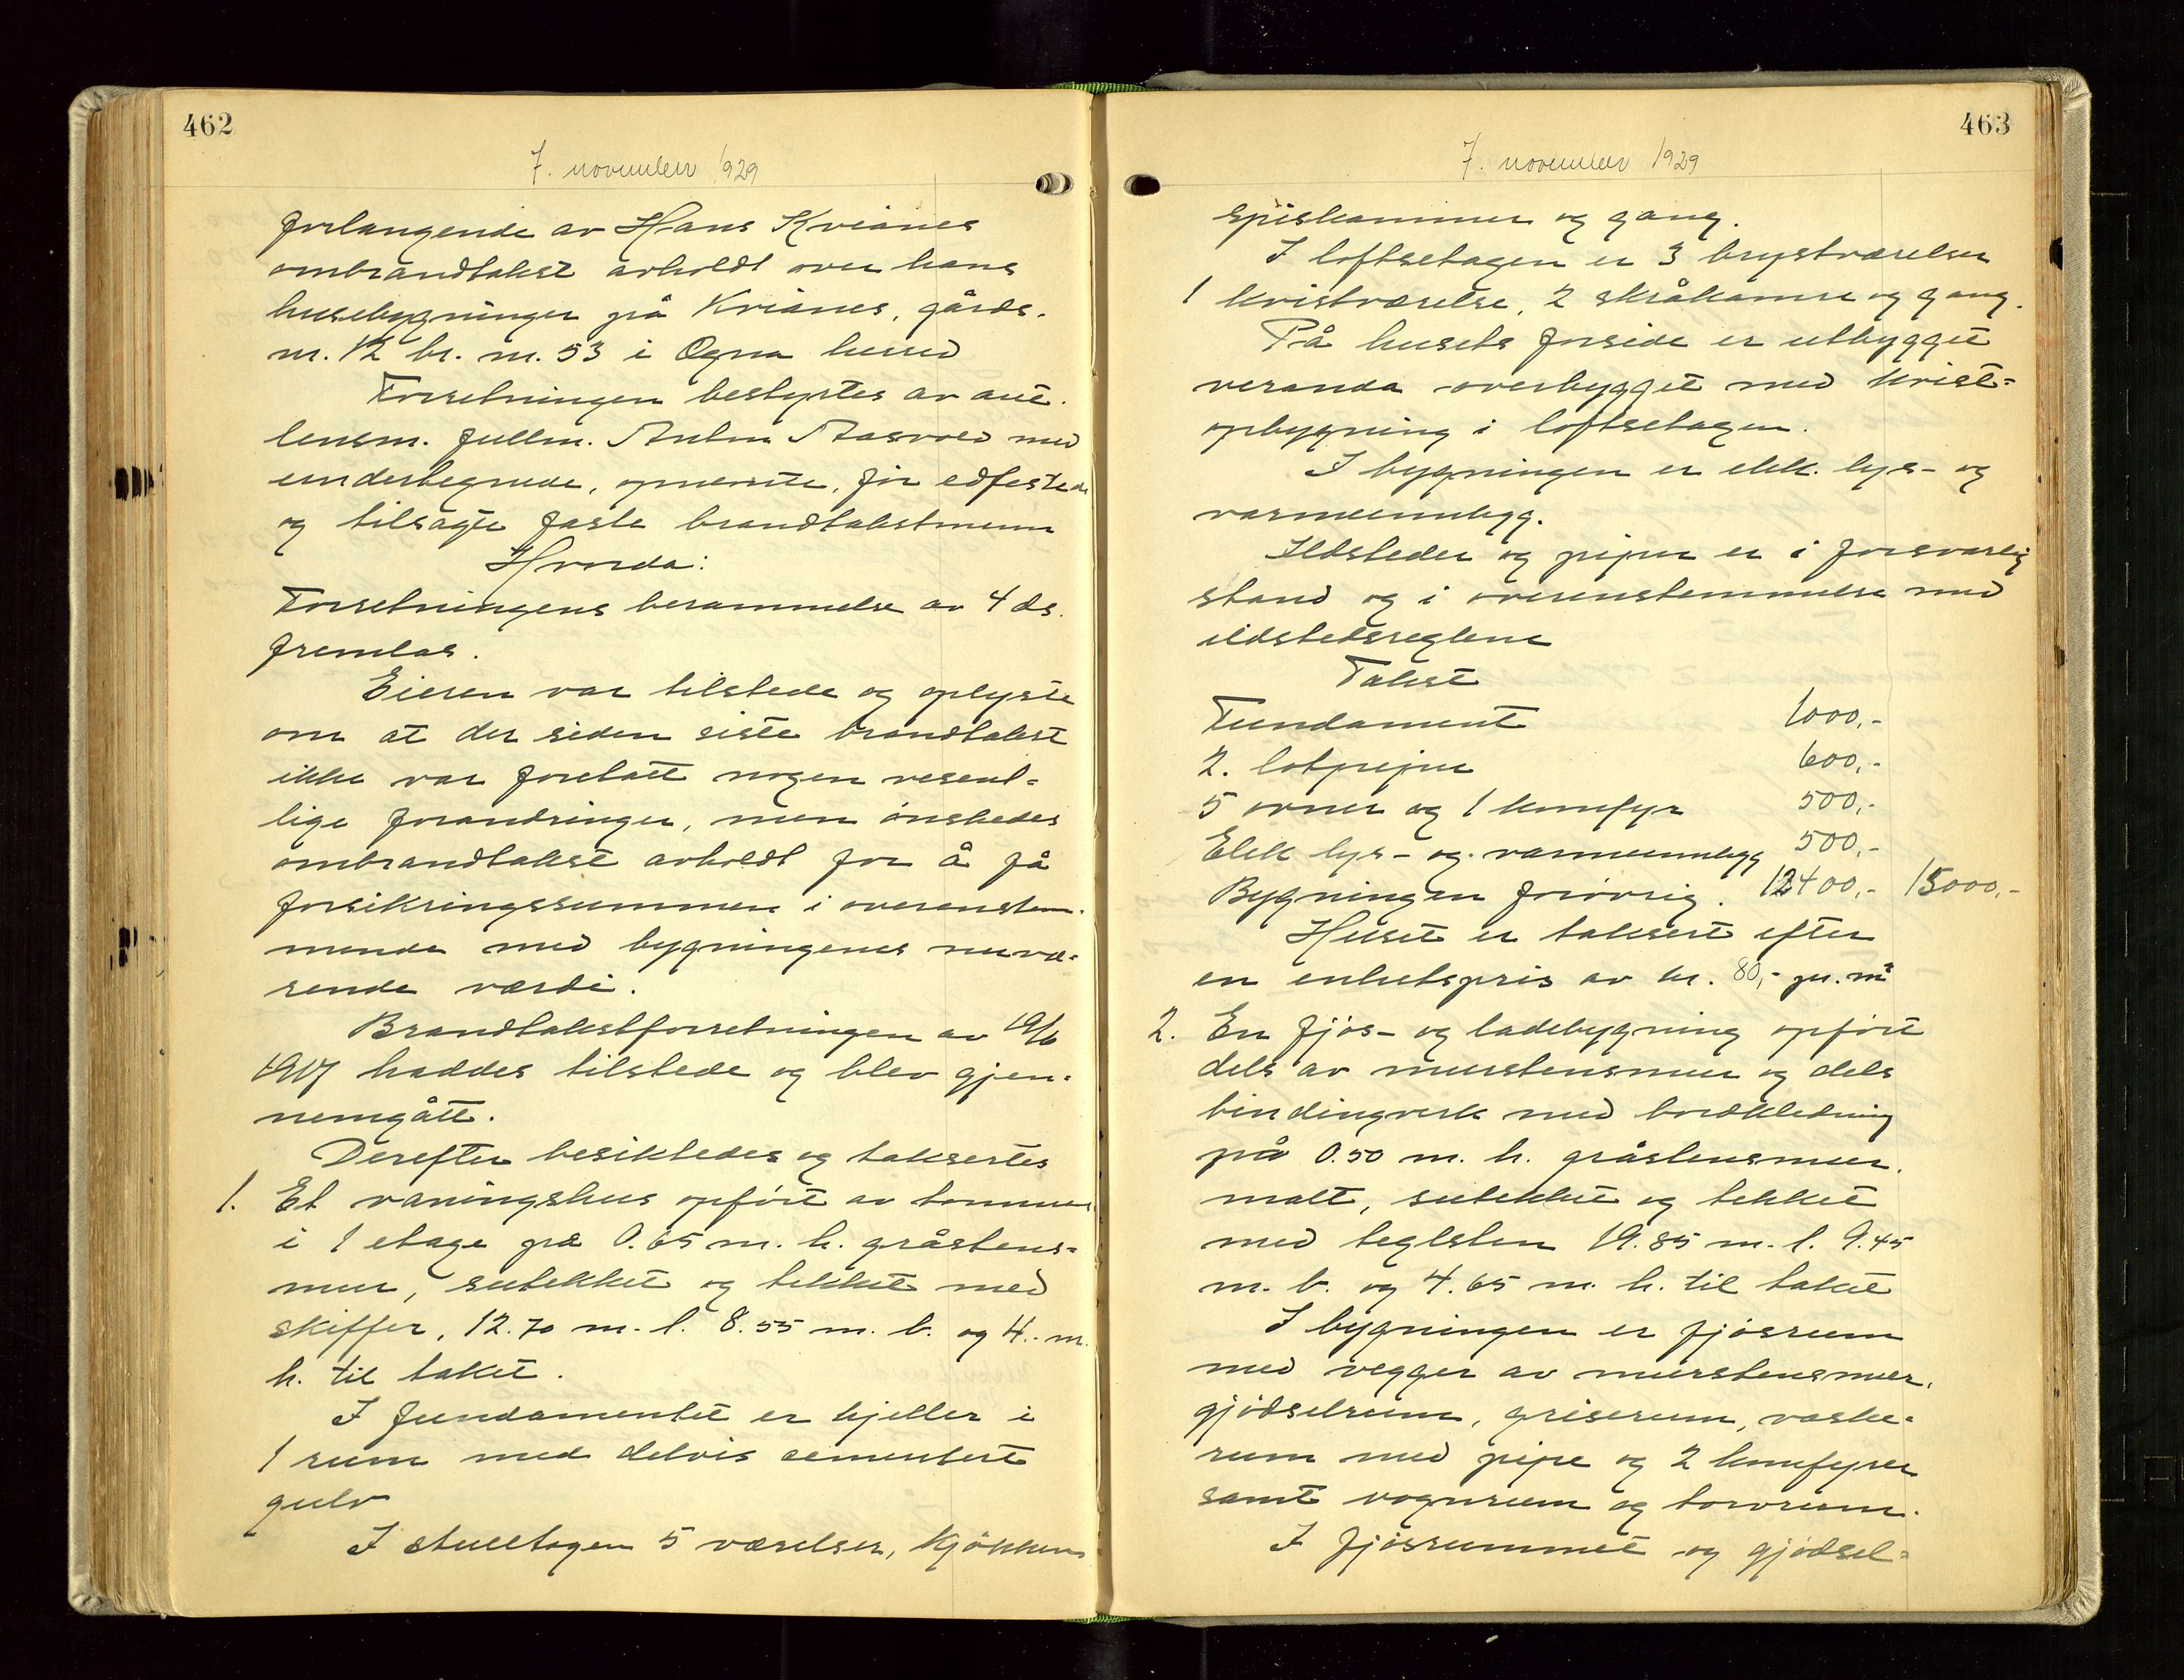 462
7. november 1929
forlangende av Hans Kvianes
ombrandtakst avholdt over hans
husebygninger på Kvianes, gårds.
nr. 12 br. nr. 53 i Ogna herred
Forretningen bestyrtes av aut.
lensm. fullm. Anton Aasvold med
undertegnede, opnevnte, før edfestede
og tilsagte faste brandtakstmenn
Hvorda:
Forretningens berammelse av 4 ds.
fremlas.
Eieren var tilstede og oplyste
om at der siden siste brandtakst
ikke var foretatt nogen vesent-
lige forandringer, men ønskedes
ombrandtakst avholdt for å få
forsikringssummen i overenstem-
mende med bygningenes nuvæ-
rende værdi.
Brandtakstforretningen av 19/6
1917 haddes tilstede og blev gjen-
nemgått.
Derefter besiktedes og taksertes
1. Et våningshus opført av tømmer
i 1 etage på 0.65 m. h. gråstens-
mur, sutekket og tekket med
skiffer, 12.70 m. l. 8.55 m. b. og 4.- m.
h. til taket.
I fundamentet er kjeller i
1 rum med delvis cementert
gulv
I stueetagen 5 værelser, kjøkken
463
7. november 1929
spiskammer og gang.
I loftsetagen er 3 brystværelser
1 kvistværelse, 2 skråkamre og gang.
På husets forside er utbygget
veranda overbygget med kvist-
opbygning i loftsetagen.
I bygningen er elek. lys- og
varmeinnlegg.
Ildsteder og piper er i forsvarlig
stand og i overenstemmelse med
ildstedsreglene
Takst
Fundament 1000,-
2. løtpiper 600,-
5 ovner og 1 komfyr 500,-
Elek lys- og varmeinnlegg 500,-
Bygningen forøvrig. 12400,- 15000,-
Huset er taksert efter
en enhetspris av kr. 80,- pr. m²
2. En fjøs- og ladebygning opført
dels av murstensmur og dels
bindingverk med bordkledning
på 0.50 m. h. gråstensmur.
malt, sutekket og tekket
med teglsten 19.85 m. l. 9.45
m. b. og 4.65 m. h. til taket
I bygningen er fjøsrum
med vegger av murstensmur,
gjødselrum, griserum, vaske-
rum med pipe og 2 komfyrer
samt vognrum og torvrum.
I fjøsrummet og gjødsel-